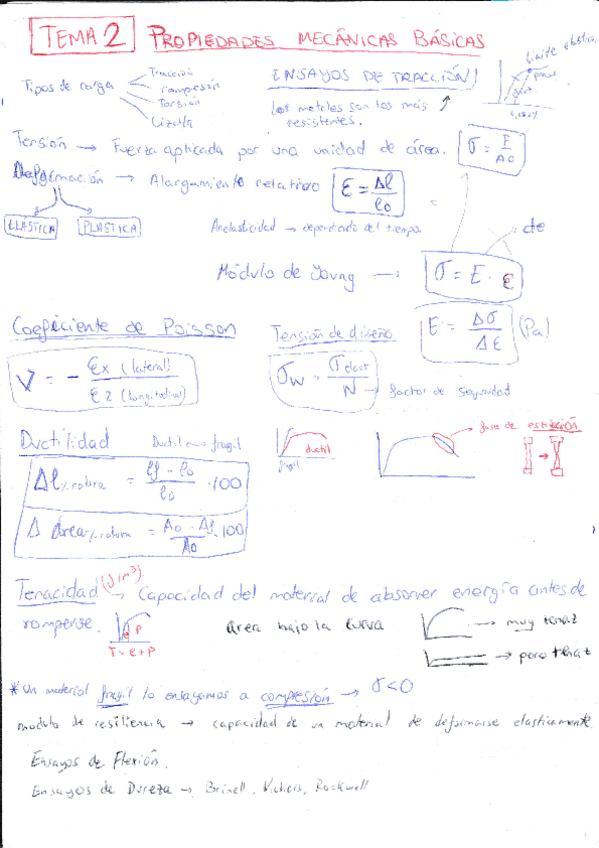 TEMA 2 PROPIEDADES MECÁNICAS BÁSICAS
Tipos de carga
Tracción
compresión
Torsión
Cizalla
ENSAYOS DE TRACCIÓN
Los metales son los más
resistentes.
Límite elástico
Tensión → Fuerza aplicada por una unidad de área. σ = F/A0
Deformación → Alargamiento relativo ε = Δl/l0
ELÁSTICA PLÁSTICA
Anelasticidad → dependiendo del tiempo
cte
Módulo de Young → σ = E · ε
E = Δσ/Δε (Pa)
Coeficiente de Poisson
ν = - εx (lateral)/εz (longitudinal)
Tensión de diseño
σw = σelast/N → factor de seguridad
Ductilidad Ductil fragil
Δl % rotura = lf - l0/l0 · 100
Δ área % rotura = A0 - Af/A0 · 100
fragil
ductil
fase de estricción
Tenacidad (J/m³) → Capacidad del material de absorver energía antes de
romperse.
e P
T = e + P
área bajo la curva
→ muy tenaz
→ poco tenaz
* Un material fragil lo ensayamos a compresión → σ<0
modulo de resiliencia → capacidad de un material de deformarse elasticamente
Ensayos de Flexión.
Ensayos de Dureza → Brinell, Vickers, Rockwell